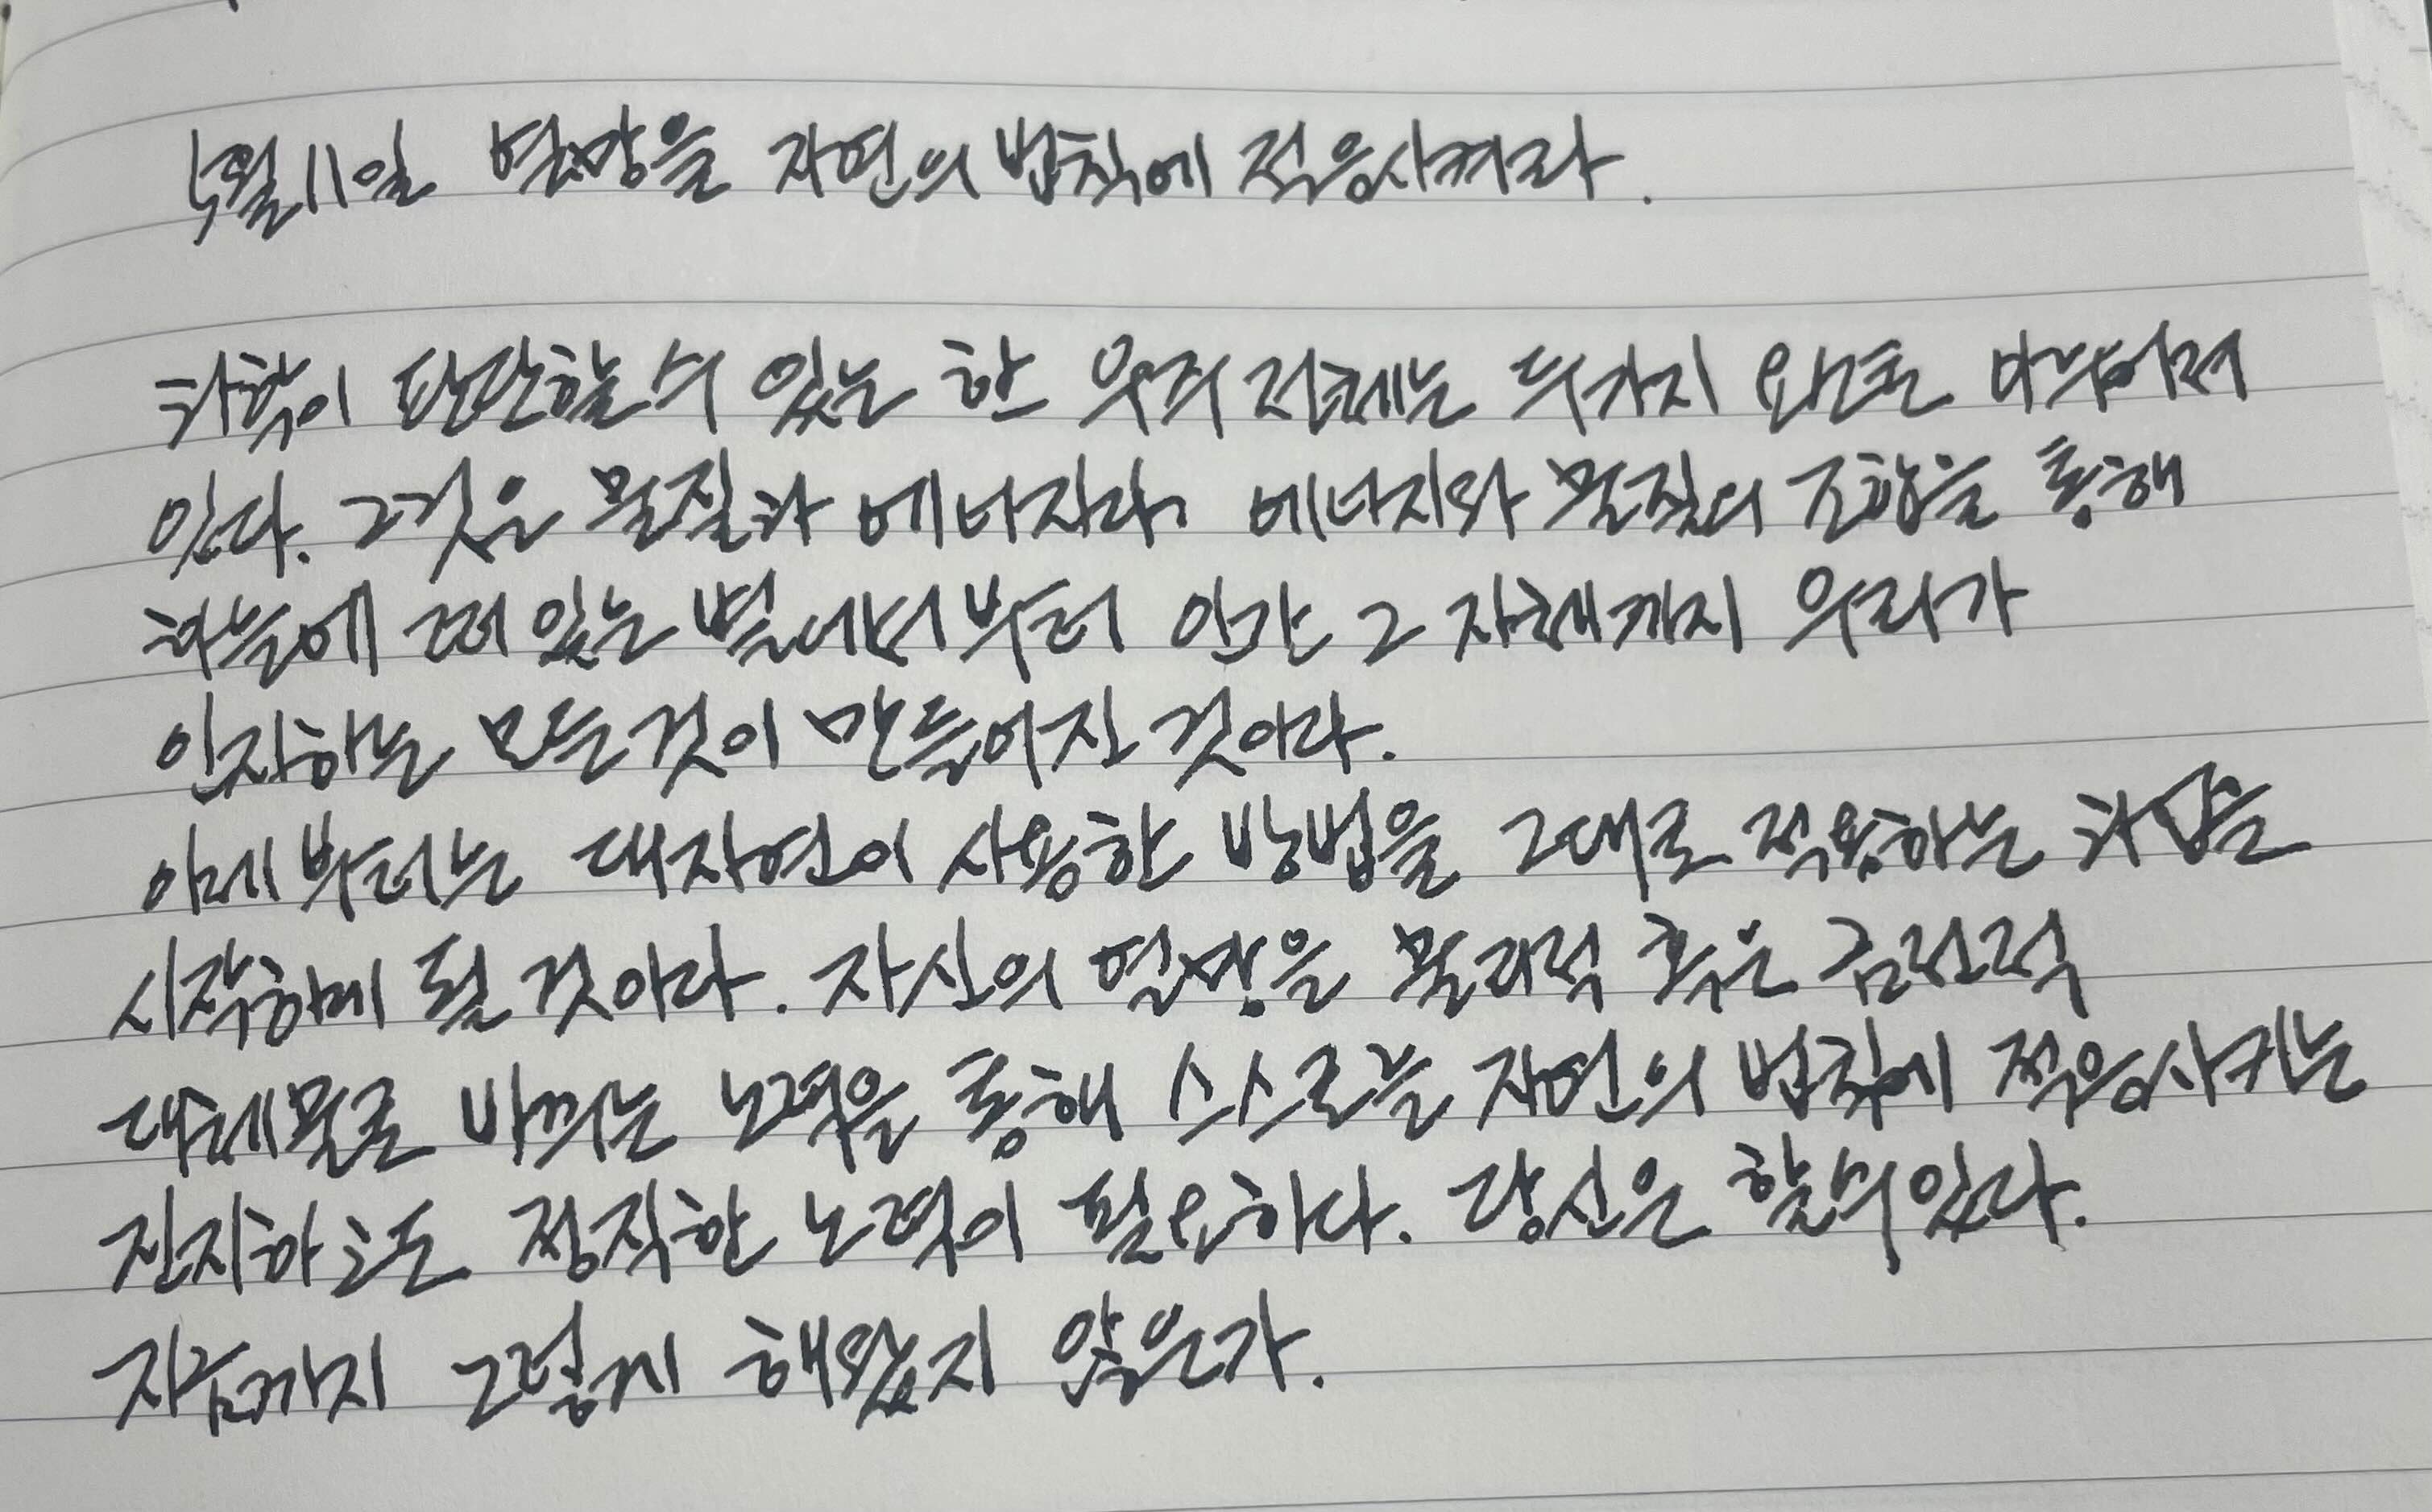 5월 11일 열망을 자연의 법칙에 적응시켜라.
과학이 판단할 수 있는 한 우주 전체는 두가지 로
있다. 그것은 물질과 에너지다. 에너지와 물질의 조합을 통해
하늘에 떠 있는 별에서부터 인간 그 자체까지 우리가
인지하는 모든 것이 만들어진 것이다.
이제부터는 대자연이 사용한 방법을 그대로 적용하는 과업을
시작하게 될 것이다. 자신의 열망을 물리적 혹은 금전적
대체물로 바꾸는 노력을 통해 스스로를 자연의 법칙에 적응시키는
진지하고도 정직한 노력이 필요하다. 당신은 할 수 있다.
지금까지 그렇게 해왔지 않은가.